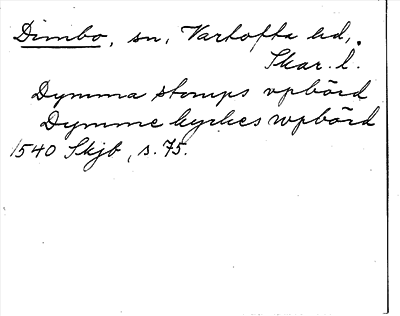 Dimbo, sn, Vartofta hd,.
Skar. l.
Dymma stomps vpbörd
Dymme kyrkes wpbörd
1540 Skjb, s. 75.